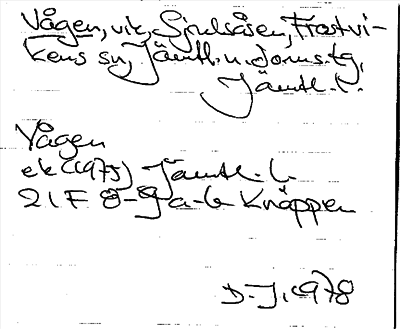 Vågen, vik, Sjulsåsen, Frostvi-
kens sn, Jämtl. n. doms. tg,
Jämtl. l.
Vågen
ek (1975) Jämtl. l.
21F 8-9 a-b Knäppen
D-J. 1978